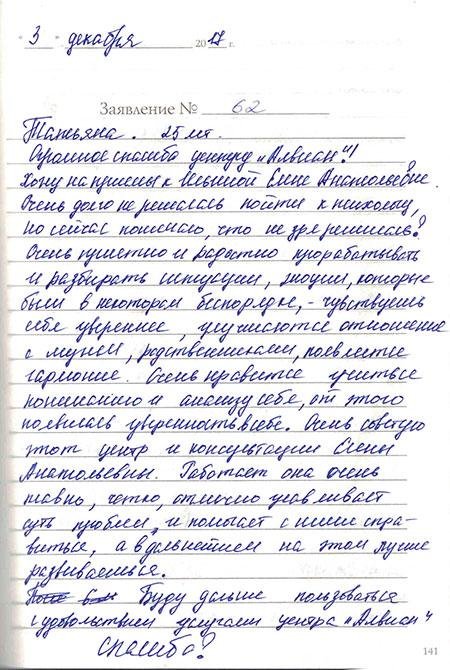 " 3 " декабря 2017 г.
Заявление № 62
Татьяна. 25 лет.
Огромное спасибо центру "Алвиан"!
Хожу на приемы к Ильиной Елене Анатольевне.
Очень долго не решалась пойти к психологу,
но сейчас понимаю, что не зря решилась!
Очень приятно и радостно прорабатывать
и разбирать ситуации, эмоции, которые
были в некотором беспорядке, - чувствуешь
себя увереннее, улучшаются отношения
с мужем, родственниками, появляется
гармония. Очень нравится учиться
пониманию и анализу себя, от этого
появилась уверенность в себе. Очень советую
этот центр и консультации Елены
Анатольевны. Работает она очень
плавно, четко, отлично улавливает
суть проблем, и помогает с ними спра-
виться, а в дальнейшем на этом лучше
развиваешься.
Буду дальше пользоваться
с удовольствием услугами центра "Алвиан"
Спасибо!
141